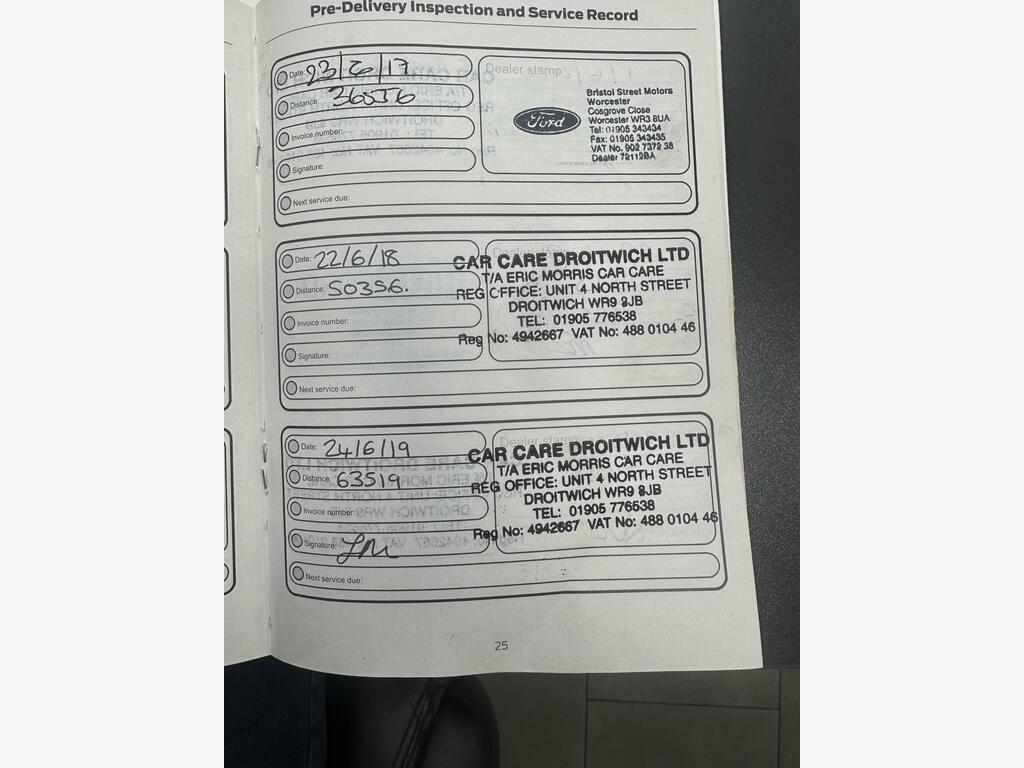 Pre-Delivery Inspection and Service Record
Date: 23/6/17
Distance: 36556
Invoice number:
Signature:
Next service due:
Dealer stamp
Ford
Bristol Street Motors
Worcester
Cosgrove Close
Worcester WR3 8UA
Tel: 01905 343434
Fax: 01905 343435
VAT No. 902 7372 38
Dealer 72112BA
Date: 22/6/18
Distance: 50356.
Invoice number:
Signature:
Next service due:
Dealer stamp
CAR CARE DROITWICH LTD
T/A ERIC MORRIS CAR CARE
REG OFFICE: UNIT 4 NORTH STREET
DROITWICH WR9 8JB
TEL: 01905 776538
Reg No: 4942667 VAT No: 488 0104 46
Date: 24/6/19
Distance: 63519
Invoice number:
Signature:
Next service due:
Dealer stamp
CAR CARE DROITWICH LTD
T/A ERIC MORRIS CAR CARE
REG OFFICE: UNIT 4 NORTH STREET
DROITWICH WR9 8JB
TEL: 01905 776538
Reg No: 4942667 VAT No: 488 0104 46
25